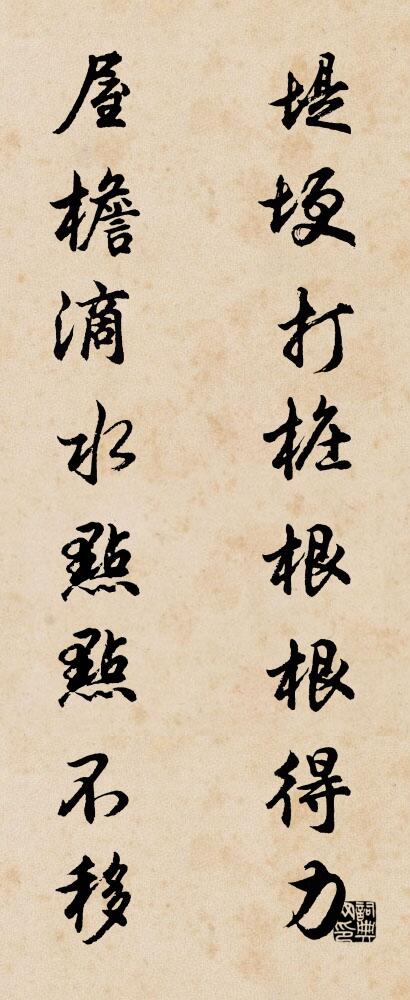 堤埂打桩根根得力
屋檐滴水點點不移
詞典网印